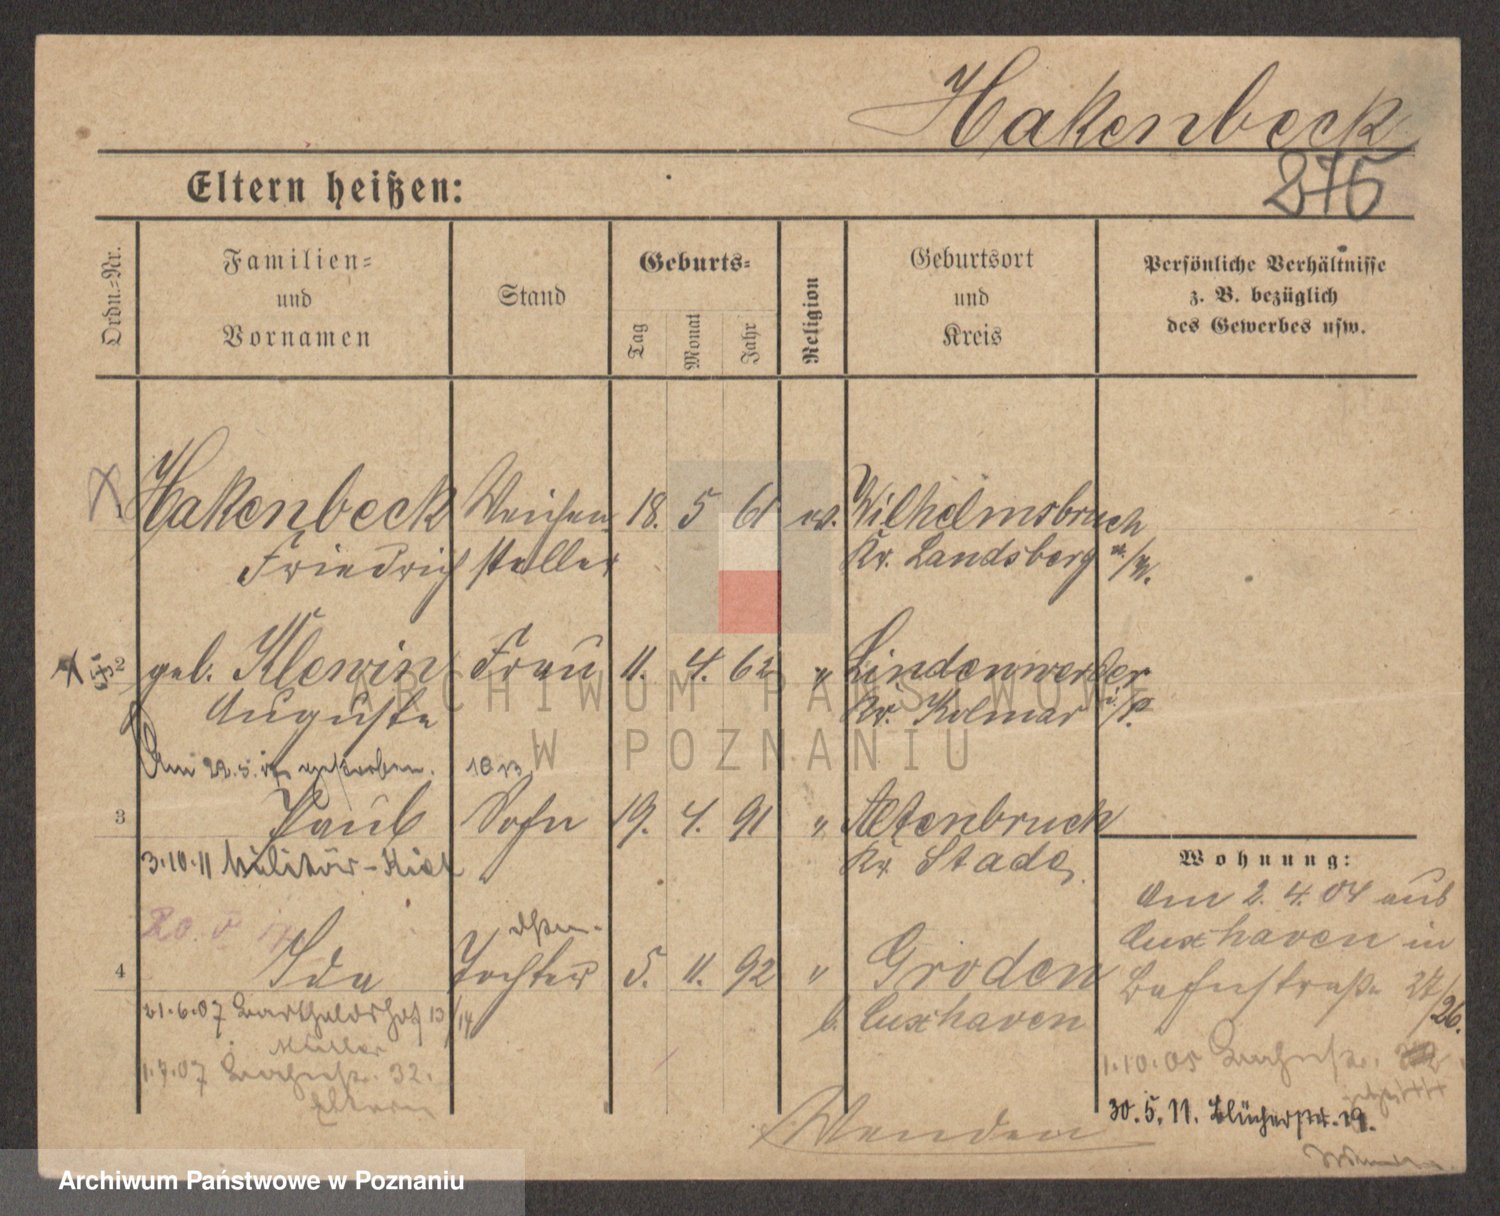 Hakenbeck
275
Eltern heißen:
Ordn.-Nr.
Familien-
und
Vornamen
Stand
Geburts-
Tag
Monat
Jahr
Religion
Geburtsort
und
Kreis
Persönliche Verhältnisse
z. B. bezüglich
des Gewerbes usw.
Hakenbeck Weichen 18. 5 61 ev. Wilhelmsbruch
Friedrich steller Kr. Landsberg a./W.
2 geb. Klewin Frau 11. 4. 62 " Lindenwerder
Auguste Kr. Kolmar i/P.
Am 22.5. gestorben.
3 Paul Sohn 19. 4. 91 " Altenbruch
3.10.11 Militär- Kr. Stade
20.
4 Ida Tochter 5. 11. 92 " Groden
b. Cuxhaven
21.6.07 Bartholdshof 13/14
Müller
1.7.07 32.
Eltern
Wohnung:
Am 2. 4. 04 aus
Cuxhaven in
Bahnstraße 27/26.
1.10.05
30.5.11. Blücherstr. 19.
Wenden
ARCHIWUM PAŃSTWOWE
W POZNANIU
Archiwum Państwowe w Poznaniu